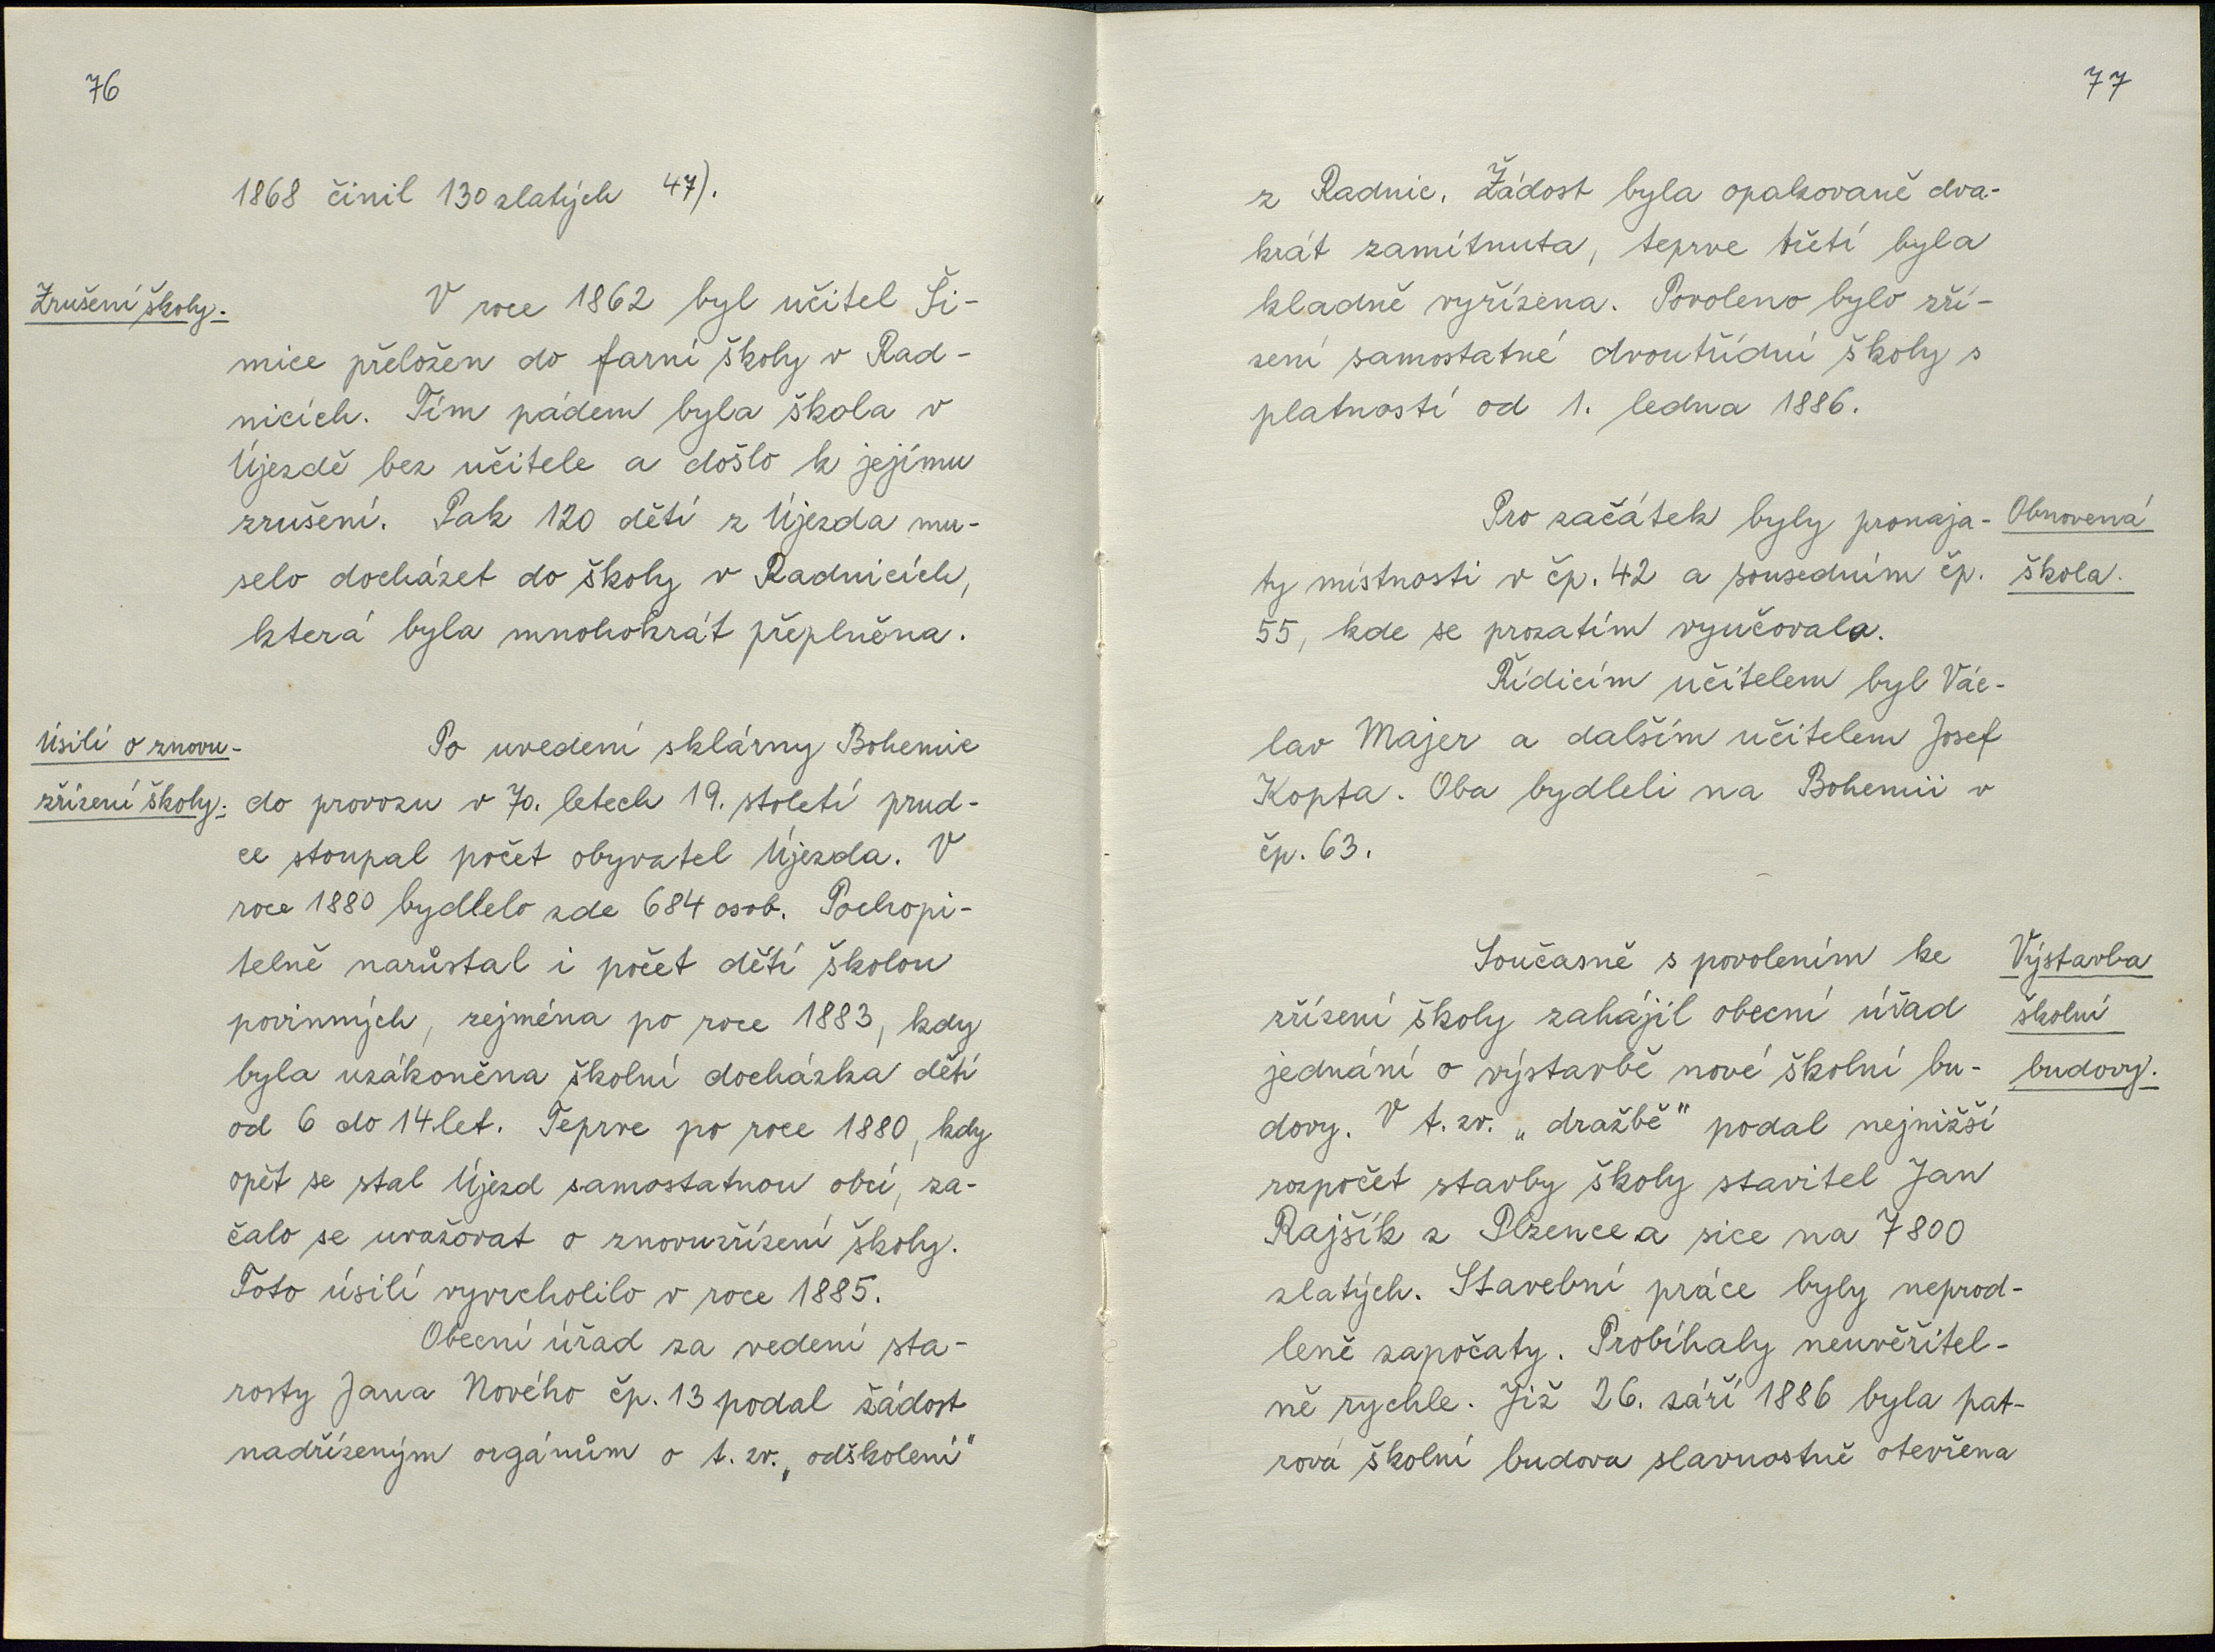 76
1868 činil 130 zlatých 47).
Zrušení školy.
V roce 1862 byl učitel Ši-
mice přeložen do farní školy v Rad-
nicích. Tím pádem byla škola v
Újezdě bez učitele a došlo k jejímu
zrušení. Pak 120 dětí z Újezda mu-
selo docházet do školy v Radnicích,
která byla mnohokrát přeplněna.
Úsilí o znovu-
zřízení školy.
Po uvedení sklárny Bohemie
do provozu v 70. letech 19. století prud-
ce stoupal počet obyvatel Újezda. V
roce 1880 bydlelo zde 684 osob. Pochopi-
telně narůstal i počet dětí školou
povinných, zejména po roce 1883, kdy
byla uzákoněna školní docházka dětí
od 6 do 14 let. Teprve po roce 1880, kdy
opět se stal Újezd samostatnou obcí, za-
čalo se uvažovat o znovuzřízení školy.
Toto úsilí vyvrcholilo v roce 1885.
Obecní úřad za vedení sta-
rosty Jana Nového čp. 13 podal žádost
nadřízeným orgánům o t. zv. „odškolení"
77
z Radnic. Žádost byla opakovaně dva-
krát zamítnuta, teprve třetí byla
kladně vyřízena. Povoleno bylo zří-
zení samostatné dvoutřídní školy s
platností od 1. ledna 1886.
Pro začátek byly pronaja-
ty místnosti v čp. 42 a sousedním čp.
55, kde se prozatím vyučovalo.
Obnovená
škola.
Řídicím učitelem byl Vác-
lav Majer a dalším učitelem Josef
Kopta. Oba bydleli na Bohemii v
čp. 63.
Současně s povolením ke
zřízení školy zahájil obecní úřad
jednání o výstavbě nové školní bu-
Výstavba
školní
budovy.
dovy. V t. zv. „dražbě" podal nejnižší
rozpočet stavby školy stavitel Jan
Rajšík z Plzence a sice na 7800
zlatých. Stavební práce byly neprod-
leně započaty. Probíhaly neuvěřitel-
ně rychle. Již 26. září 1886 byla pat-
rová školní budova slavnostně otevřena